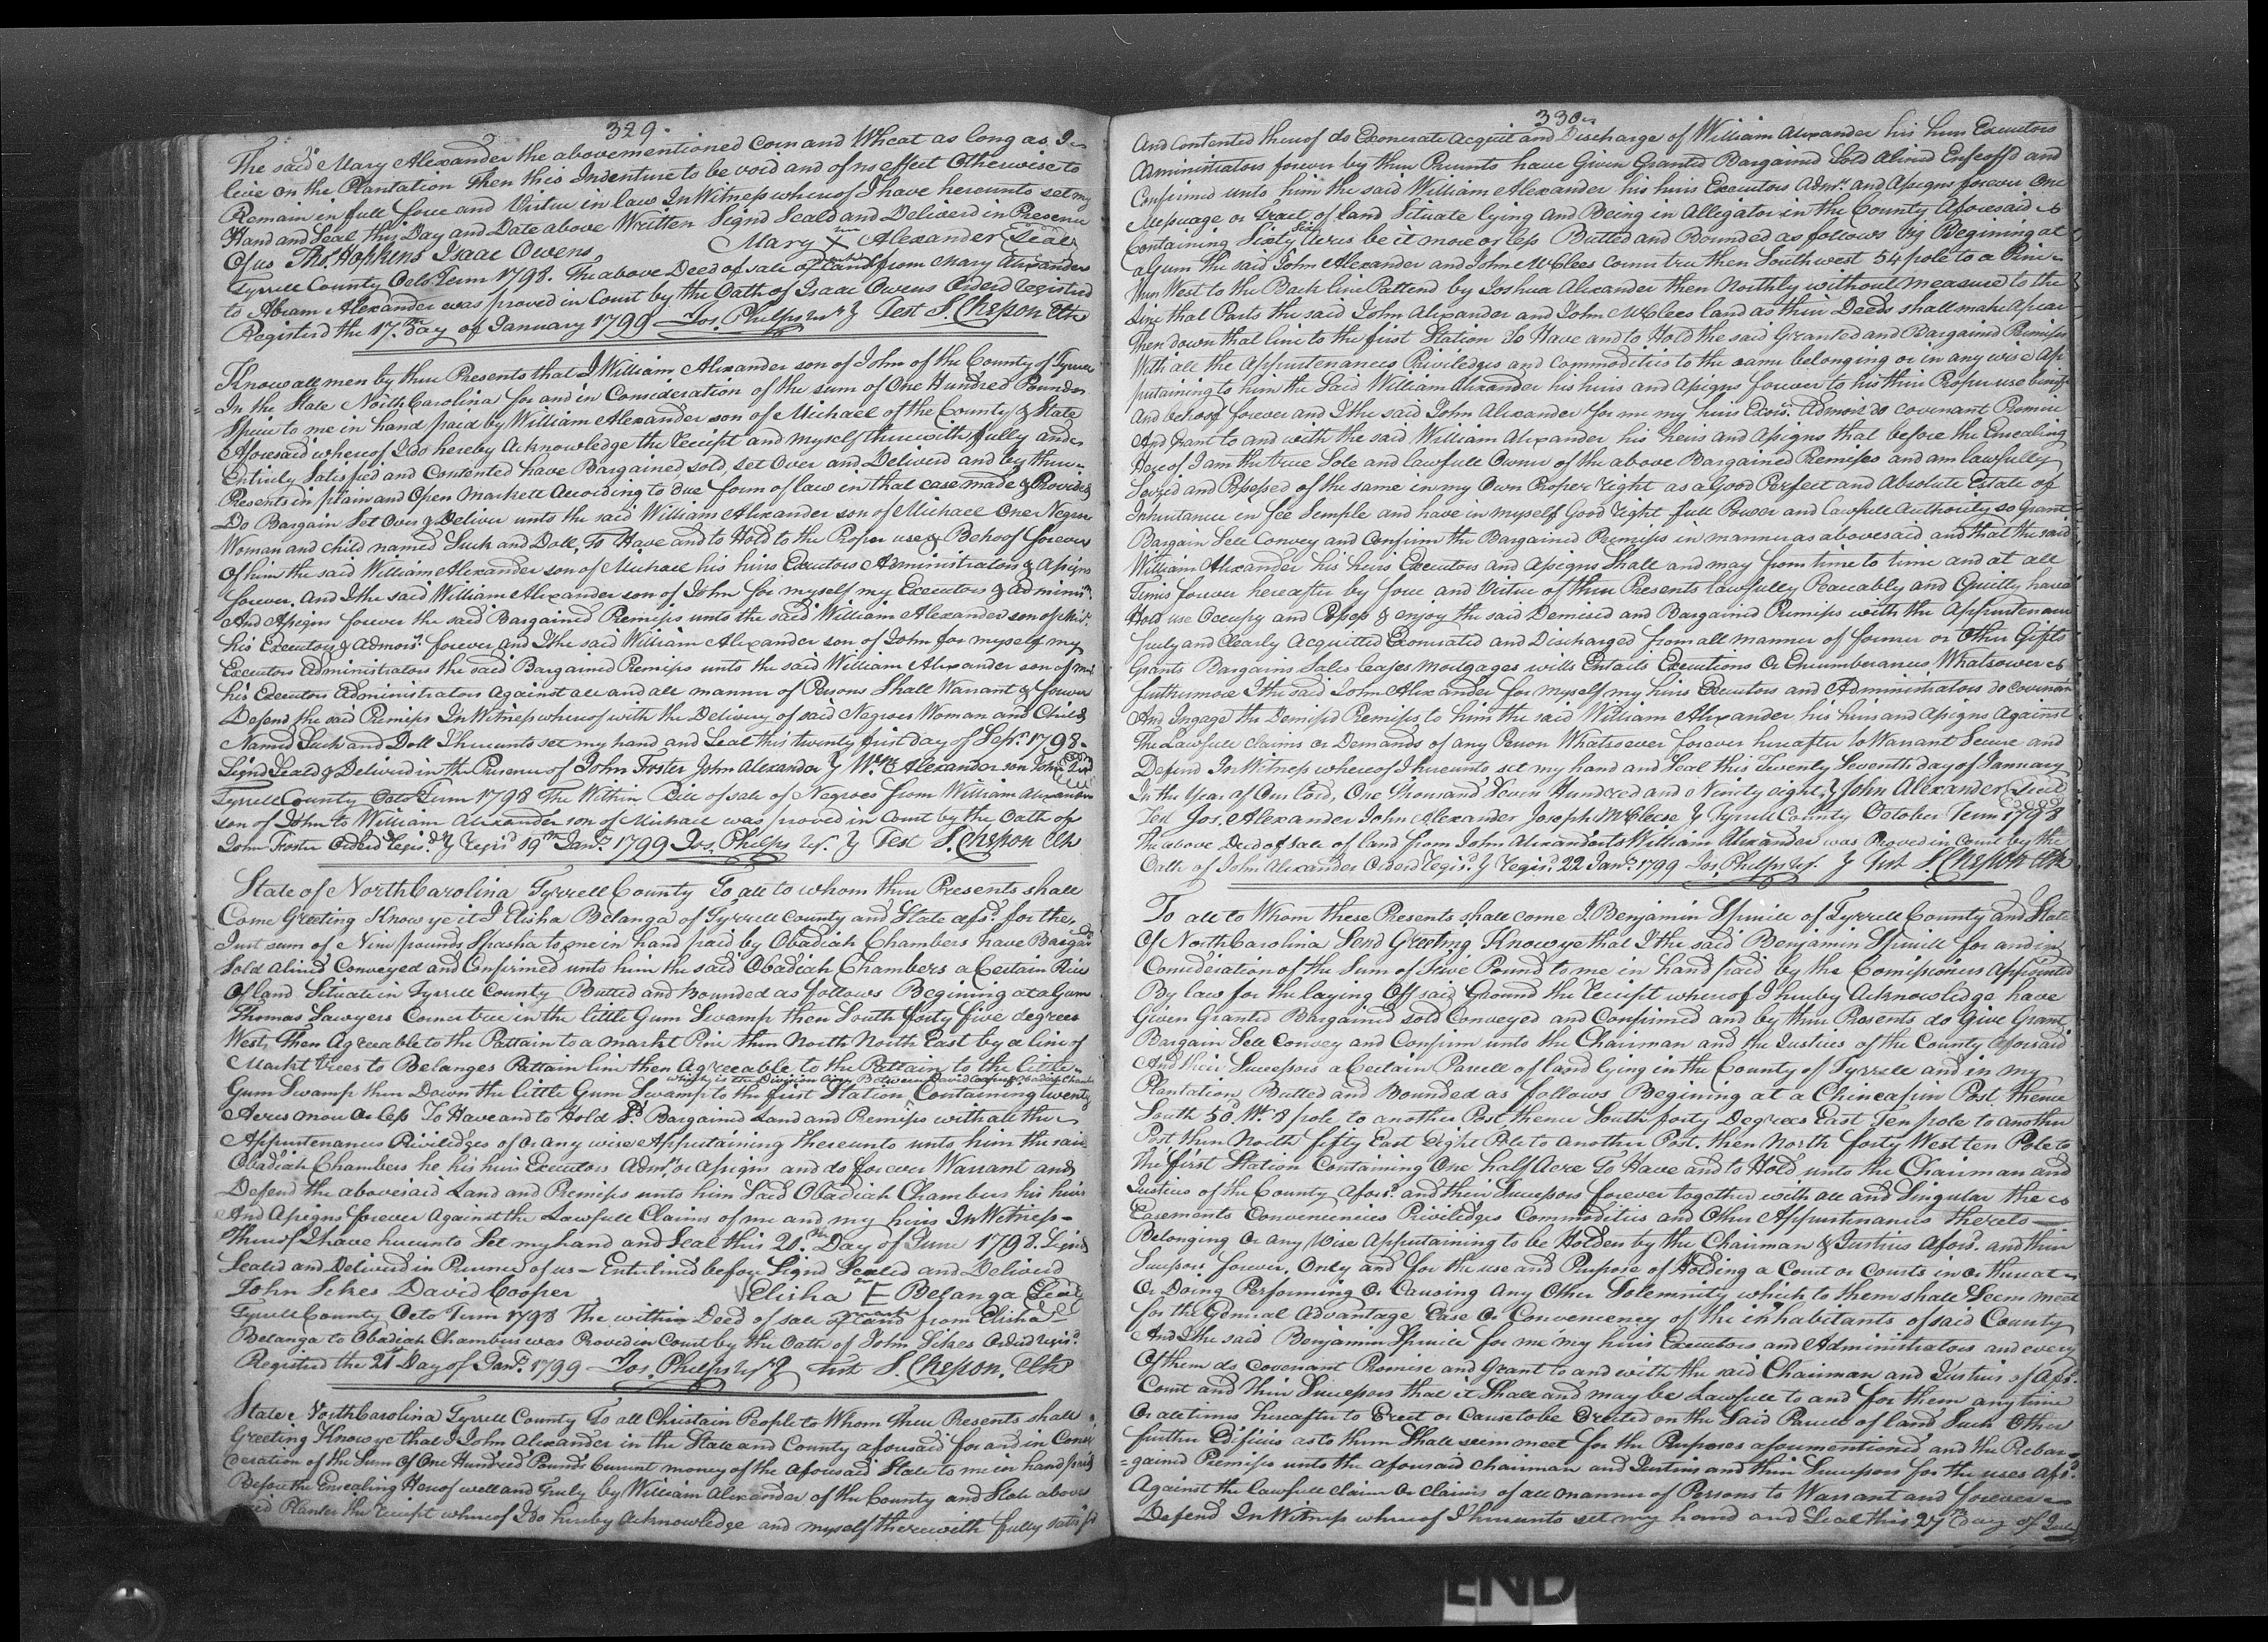 329.
The said Mary Alexander the abovementioned Corn and Wheat as long as I
live on the Plantation Then this Indenture to be void and of no effect Otherwise to
Remain in full force and Virtue in law In Witness whereof I have hereunto set my
Hand and Seal this Day and Date above Written Signd Seald and Deliverd in Presence
Of us Thos. Hopkins Isaac Owens Mary X Alexander Seal
Tyrrell County Octo. Term 1798. The above Deed of sale of land from Mary Alexander
to Abram Alexander was proved in Court by the Oath of Isaac Owens Orderd registerd
Registerd the 17.th day of January 1799 Jos. Phelps Test S. Chesson Clk
Know all men by these Presents that I William Alexander son of John of the County of Tyrrell
In the State North Carolina for and in Consideration of the sum of One Hundred Pounds
Specie to me in hand paid by William Alexander son of Michael of the County & State
Aforesaid whereof I do hereby Acknowledge the Receipt and myself therewith fully and
Entirely Satisfied and Contented have Bargained sold, set Over and Deliverd and by these
Presents in plain and Open Markett According to due form of law in that case made & Provided
Do Bargain Set Over & Deliver unto the said William Alexander son of Michael One Negroe
Woman and child named Suck and Doll, To Have and to Hold to the Proper use & Behoof forever
Of him the said William Alexander son of Michael his heirs Executors Administrators & Assigns
forever, And I the said William Alexander son of John for myself my Executors & Admini
And Assigns forever the said Bargained Premises unto the said William Alexander son of
his Executors & Admors. forever and I the said William Alexander son of John for myself my
Executors Administrators the said Bargained Premises unto the said William Alexander son of
his Executors Administrators Against all and all manner of Persons Shall Warrant & forever
Defend the said Premises In Witness whereof with the Delivery of said Negroes Woman and Child
Named Suck and Doll I hereunto set my hand and Seal this twenty first day of Sepr. 1798.
Signd Seald & Deliverd in the Presence of John Foster John Alexander } Wm. Alexander son John Seal
Tyrrell County Octo Term 1798 The Within Bill of sale of Negroes from William Alexander
son of John to William Alexander son of Michael was proved in Court by the Oath of
John Foster Orderd Regis.d } Regis.d 19th Jany. 1799 Jos. Phelps } Test S. Chesson Clk
State of North Carolina Tyrrell County To all to whom these Presents shall
Come Greeting Know ye it I Elisha Belanga of Tyrrell County and State afsd. for the
Just sum of Nine pounds to me in hand paid by Obadiah Chambers have Bargain
Sold Aliend Conveyed and Confirmed unto him the said Obadiah Chambers a Certain Piece
Of land Situate in Tyrrell County Butted and bounded as follows Begining at a Gum
Thomas Sawyers Corner tree in the little Gum Swamp then South forty five degrees
West, Then Agreeable to the Pattain to a markt Pine then North North East by a line of
Markt trees to Belanges Pattain line then Agreeable to the Pattain to the little
which is the Division line Between David Cooper & Obadiah Chambers
Gum Swamp then Down the little Gum Swamp to the first Station Containing twenty
Acres more Or less To Have and to Hold sd. Bargained Land and Premises with all the
Appurtenances Priviledges of Or any wise Appertaining Thereunto unto him the said
Obadiah Chambers he his heirs Executors Admrs. or Assigns and do forever Warrant and
Defend the abovesaid Land and Premises unto him Said Obadiah Chambers his heirs
And Assigns forever Against the Lawfull Claims of me and my heirs In Witness
Thereof I have hereunto Set my hand and Seal this 20th Day of June 1798. Signd
Sealed and Deliverd in Presence of us Enterlined before Signd Sealed and Deliverd
John Sikes David Cooper Elisha E Belanga Seal
Tyrrell County Octo Term 1798 The within Deed of sale of land from Elisha
Belanga to Obadiah Chambers was Proved in Court by the Oath of John Sikes Orderd regis.d
Registerd the 21st Day of Jany. 1799 Jos. Phelps } test S. Chesson. Clk
State North Carolina Tyrrell County To all Christain People to Whom these Presents shall
Greeting Know ye that I John Alexander in the State and County aforesaid for and in Consi
deration of the Sum Of One Hundred Pounds Current money of the aforesaid State to me in hand paid
Before the Ensealing Hereof well and Truly by William Alexander of the County and State above
said Planter the Receipt whereof I do hereby Acknowledge and myself therewith fully satisfd
330
And Contented thereof do Exonerate Acquit and Discharge of William Alexander his heirs Executors
Administrators forever by these Presents have Given Granted Bargained Sold Aliend Enfeoff'd and
Confirmed unto him the said William Alexander his heirs Executors Admrs. and Assigns forever One
Messuage or Tract of land Situate lying and Being in Alligator in the County Aforesaid
Containing Sixty Six Acres be it more or less Butted and Bounded as follows viz Begining at
a Gum the said John Alexander and John McClees corner tree then Southwest 54 pole to a Pine
then West to the Back line Pattend by Joshua Alexander then Northly without measure to the
line that Parts the said John Alexander and John McClees land as their Deeds shall make Apear
Then down that line to the first Station To Have and to Hold the said Granted and Bargained Premises
With all the Appurtenances Priviledges and Commodities to the same belonging or in any wise Ap
pertaining to him the Said William Alexander his heirs and Assigns forever to his their Proper use benifit
And behoof forever and I the said John Alexander for me my heirs Exors. Admors do covenant Promise
And grant to and with the said William Alexander his heirs and Assigns that before the Ensealing
Hereof I am the true Sole and lawfull Owner of the above Bargained Premises and am lawfully
Seized and Possesed of the same in my Own Proper right as a Good Perfect and Absolute Estate of
Inheritance in fee Simple and have in myself Good right full Power and Lawfull Authority so Grant
Bargain Sell Convey and Confirm the Bargained Premises in manner as abovesaid and that the said
William Alexander his heirs Executors and Assigns Shall and may from time to time and at all
Times forever hereafter by force and Virtue of these Presents lawfully Peaceably and Quitly have
Hold use Occupy and Possess & enjoy the said Demised and Bargained Premises with the Appurtenance
freely and Clearly Acquitted Exonerated and Discharged from all manner of former or Other Gifts
Grants Bargains Sales leases Mortgages wills Entails Executions Or Encumberances Whatsoever &
furthermore I the said John Alexander for myself my heirs Executors and Administrators do covenan
And Ingage the Demised Premises to him the said William Alexander his heirs and Assigns Against
The Lawfull claims or Demands of any Person Whatsoever forever hereafter to Warrant Secure and
Defend In Witness whereof I hereunto set my hand and Seal this Twenty Seventh day of January
In the Year of Our Lord, One Thousand Seven Hundred and Ninety eight, } John Alexander Seal
Test Jos. Alexander John Alexander Joseph McCleese } Tyrrell County October Term 1798
The above Deed of sale of land from John Alexander to William Alexander was Proved in Court by the
Oath of John Alexander Orderd regis.d } Regis.d 22 Jany. 1799 Jos Phelps } Test S. Chesson Clk
To all to Whom these Presents shall come I Benjamin Spruill of Tyrrell County and State
Of North Carolina Send Greeting Know ye that I the said Benjamin Spruill for and in
Consideration of the Sum of Five Pound to me in hand paid by the Comissioners Appointed
By law for the laying Off said Ground the Receipt whereof I hereby Acknowledge have
Given Granted Bargained sold Conveyed and Confirmed and by these Presents do Give Grant
Bargain Sell Convey and Confirm unto the Chairman and the Justices of the County aforesaid
And their Successors a Certain Parcell of land lying in the County of Tyrrell and in my
Plantation Butted and Bounded as follows Begining at a Chincapin Post thence
South 50 Wt. 8 pole to another Post, thence South forty Degrees East Ten pole to another
Post then North fifty East Eight Pole to another Post, then North forty West ten Pole to
the first Station Containing One half Acre To Have and to Hold unto the Chairman and
Justices of the County Aforsd. and their Successors forever together with all and Singular the
Easements Conveniencies Priviledges Commodities and Other Appurtenances thereto
Belonging Or any Wise Appertaining to be Holden by the Chairman & Justices Aforsd. and their
Successors forever, Only and for the use and Purpose of Holding a Court or Courts in Or thereat
Or Doing Performing Or Causing Any Other Solemnity which to them shall Seem meet
for the General Advantage Ease Or Conveniency of the inhabitants of said County
And I the said Benjamin Spruill for me my heirs Executors and Administrators and every
Of them do Covenant Promise and Grant to and with the said Chairman and Justices of Afsd.
Court and their Successors that it Shall and may be Lawfull to and for them any time
Or all times hereafter to Erect or Cause to be Erected on the Said Parcell of land Such Other
further Edificies as to them Shall seem meet for the Purposes aforementioned and the Prebar=
=gained Premises unto the aforesaid chairman and Justices and their Successors for the uses Afsd.
Against the lawfull claim Or Claims of all manner of Persons to Warrant and forever
Defend In Witness whereof I hereunto set my hand and Seal this 27th day of
END